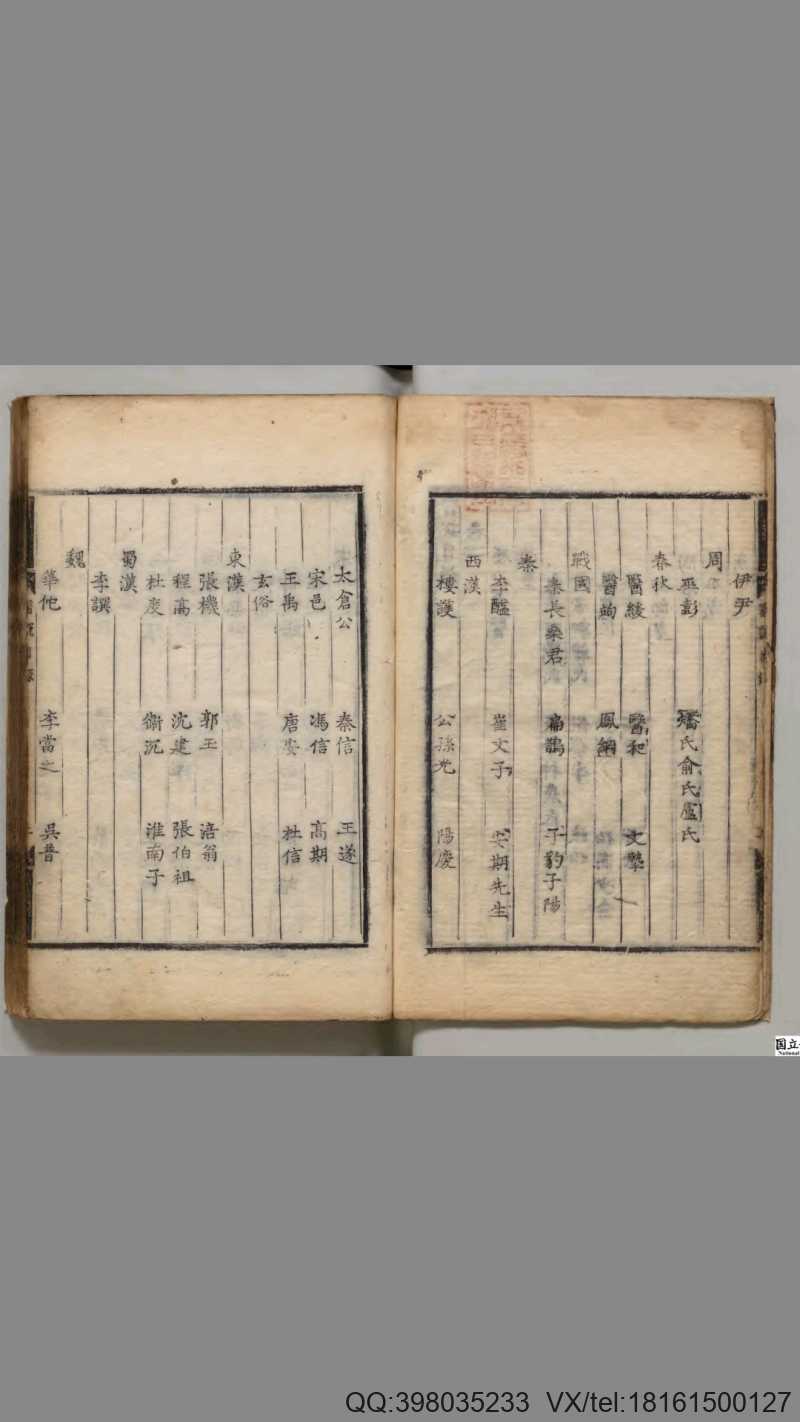 伊尹
周
巫彭 矯氏俞氏盧氏
春秋
醫緩 醫和 文摯
醫竘 鳳綱
戰國
秦長桑君 扁鵲 子豹子陽
秦
李醯 崔文子 安期先生
西漢
樓護 公孫光 陽慶
太倉公 秦信 王遂
宋邑 馮信 高期
王禹 唐安 杜信
玄俗
東漢
張機 郭玉 涪翁
程高 沈建 張伯祖
杜度 衛沉 淮南子
蜀漢
李譔
魏
華佗 李當之 吳普
国立
National
QQ:398035233 VX/tel:18161500127